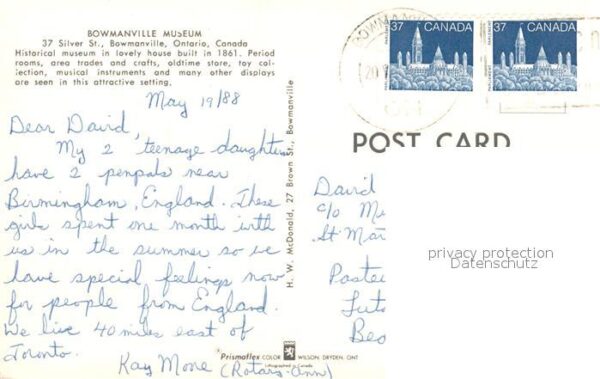 BOWMANVILLE MUSEUM
37 Silver St., Bowmanville, Ontario, Canada
Historical museum in lovely house built in 1861. Period
rooms, area trades and crafts, oldtime store, toy col-
lection, musical instruments and many other displays
are seen in this attractive setting.
May 19/88
Dear David,
My 2 teenage daughters
have 2 penpals near
Birmingham, England. These
girls spent one month with
us in the summer so we
have special feelings now
for people from England.
We live 40 miles east of
Toronto.
Kay More
(Rotary-Ann)
H. W. McDonald, 27 Brown St., Bowmanville
Prismaflex COLOR WILSON, DRYDEN, ONT
Lithographed in Canada
37 CANADA
37 CANADA
POST CARD
David
c/o
St Mar
privacy protection
Datenschutz